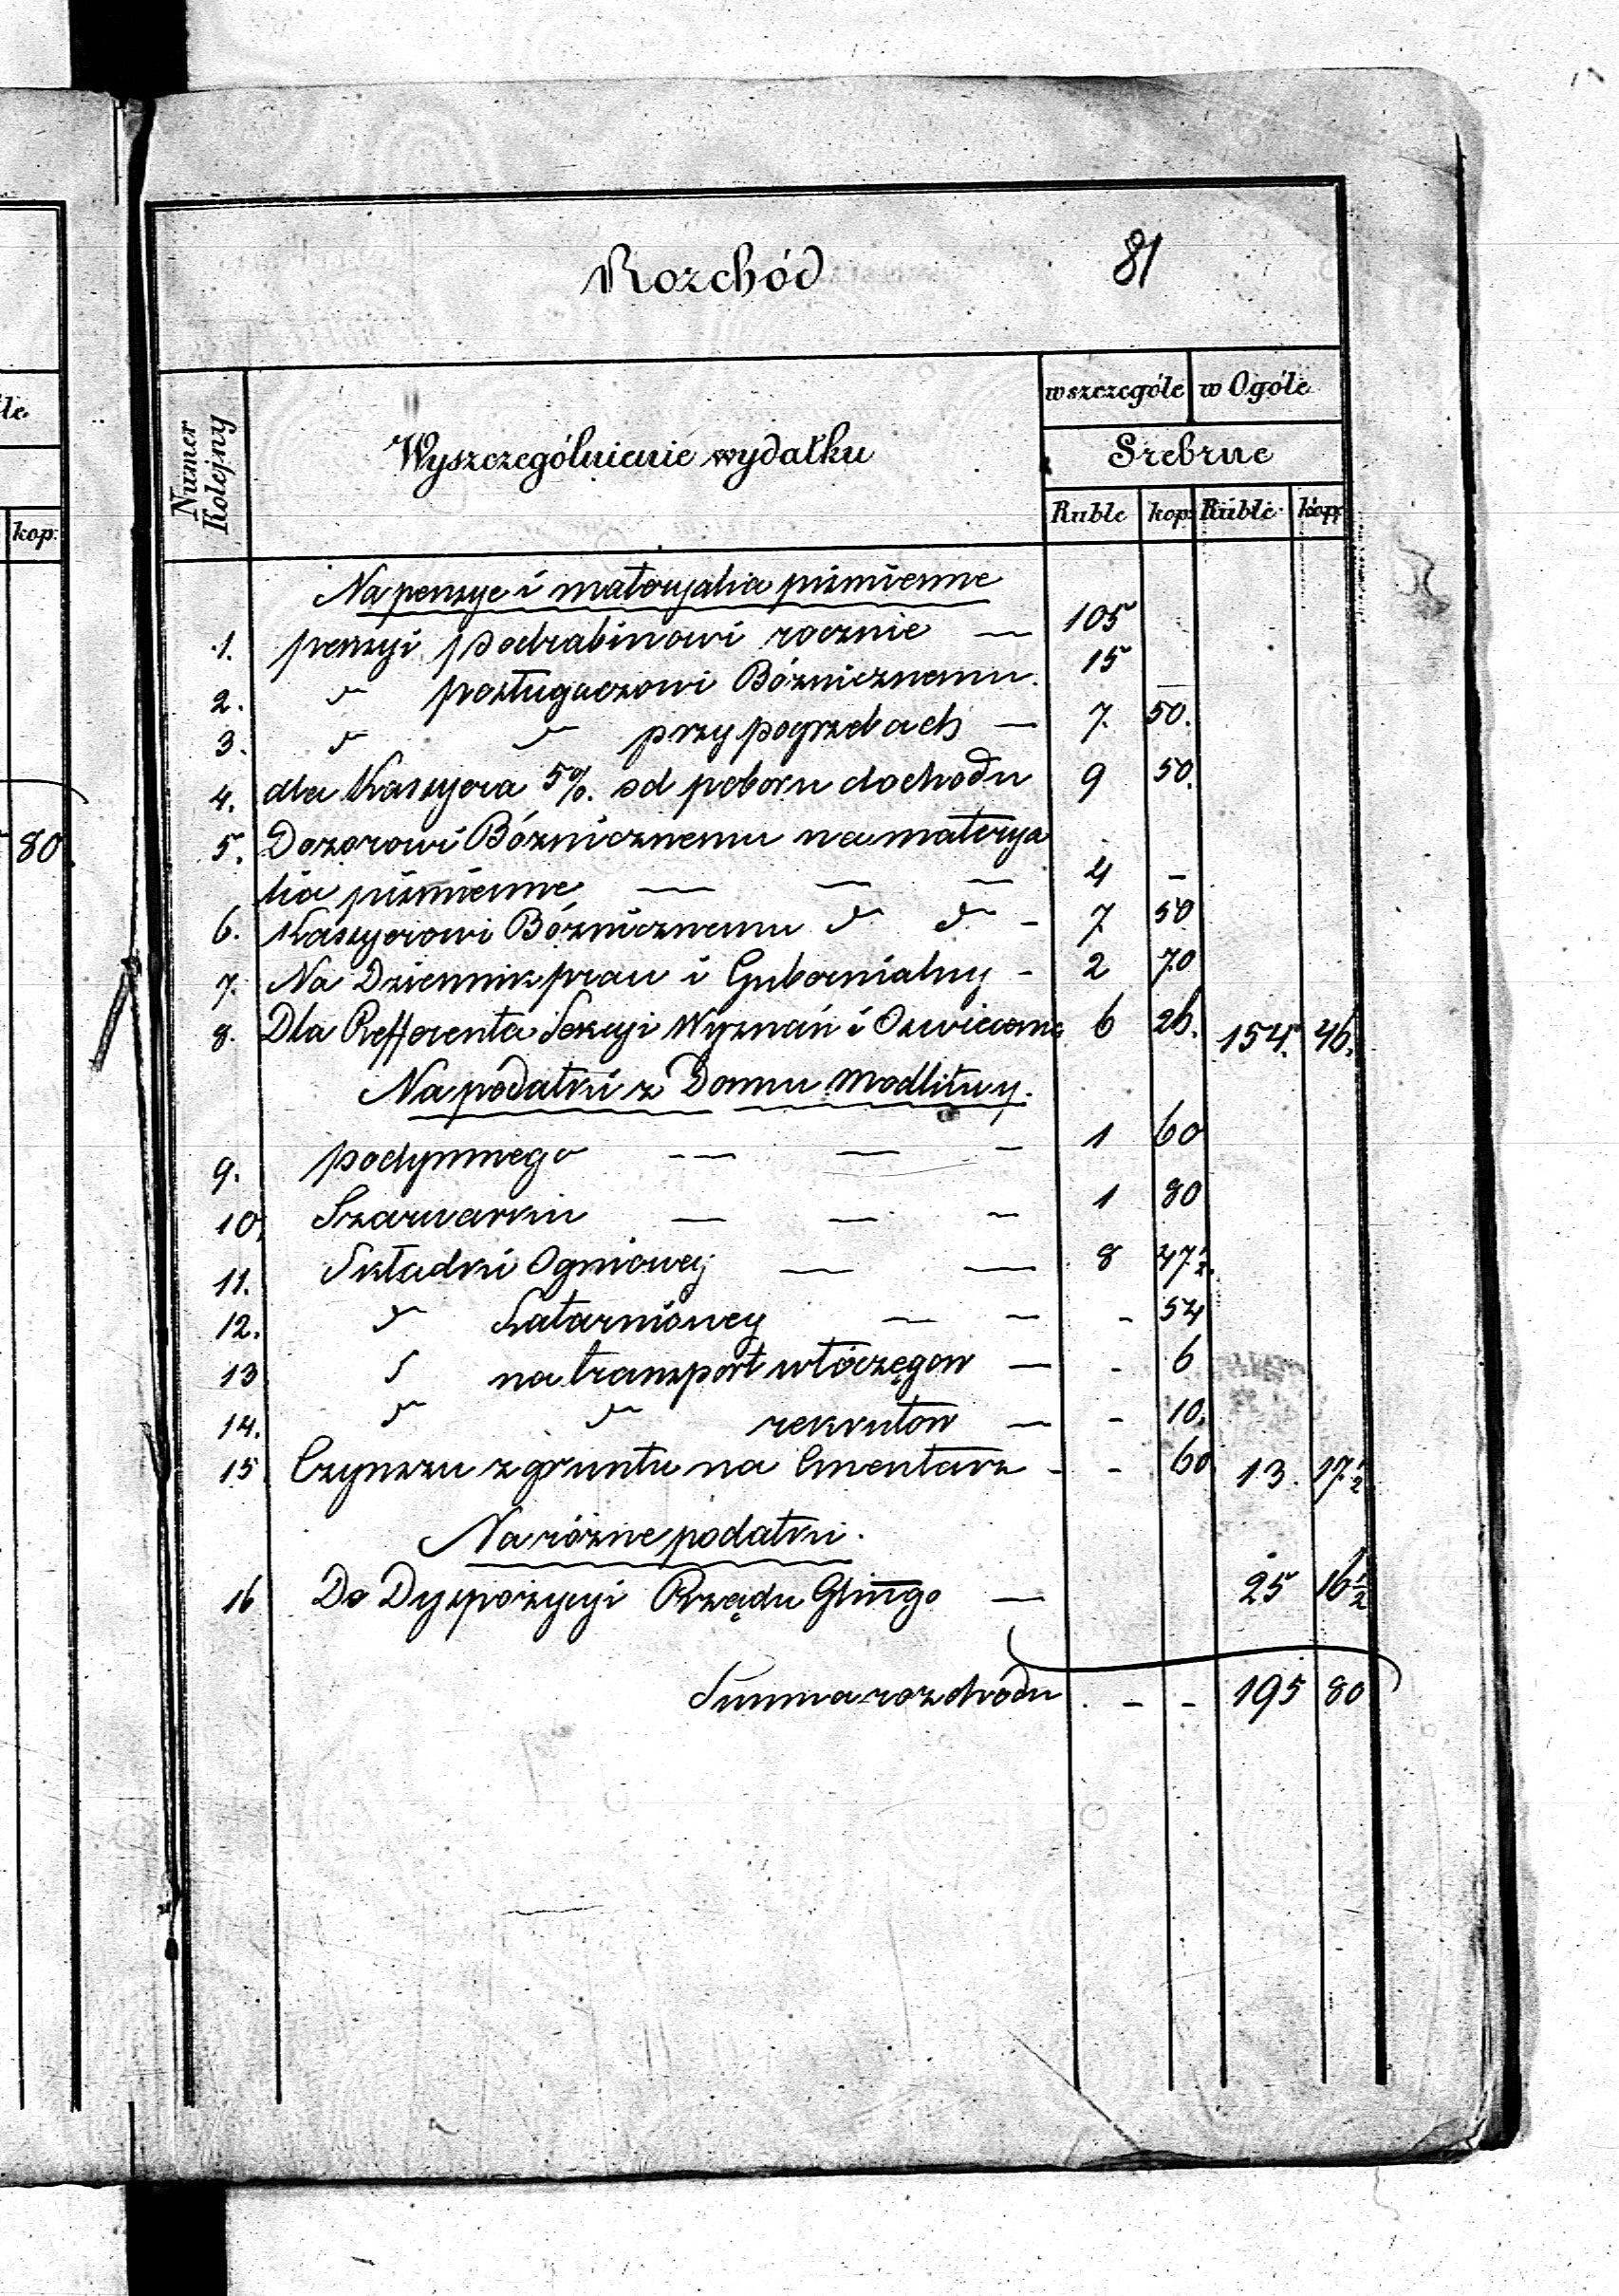 le.
kop:
80.
Rozchód
81
Numer Kolejny
Wyszczególnienie wydatku
w szczególe
w Ogóle
Srebrne
Ruble
kop:
Ruble
kop:
Na pensye i materyalia piśmienne
1. pensyi podrabinowi rocznie — 105
2. " posługaczowi Bóżnicznemu. 15 —
3. " " przy pogrzebach — 7. 50.
4. dla Kassyera 5%. od poboru dochodu 9 50.
5. Dozorowi Bóżnicznemu na materya
lia piśmienne — — — 4 –
6. Kassyerowi Bóżnicznemu " " – 7. 50
7. Na Dziennik praw i Gubernialny – 2 70
8. Dla Refferenta Sekcyi Wyznań i Oswiecenia 6 26. 154. 46.
Na podatki z Domu Modlitwy.
9. podymnego — — – 1 60
10. Szarwarku — — – 1 80
11. Składki Ogniowey — — 8 47½.
12. " Latarniowey — – – 54
13 " na transport włóczęgow — - 6
14. " " rekrutow — - 10.
15 Czynszu z gruntu na Cmentarz - - 60 13. 17½
Na różne podatki.
16 Do Dyspozycyi Rządu Gbnego — 25 16½
Summa rozchodu . – – 195 80